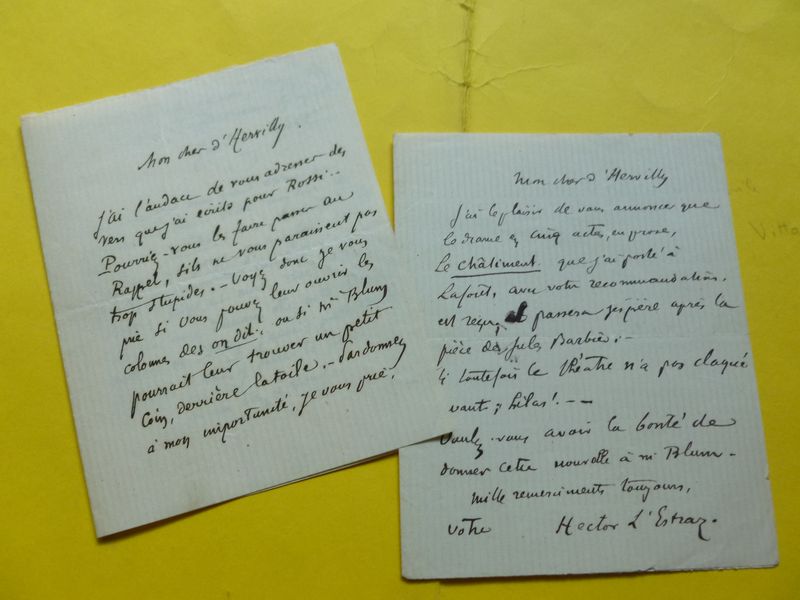 Mon cher d'Hervilly.
J'ai l'audace de vous adresser des
vers que j'ai écrits pour Rossi..
Pourriez-vous les faire passer au
Rappel, s'ils ne vous paraissent pas
trop stupides. - Voyez donc je vous
prie si vous pouvez leur ouvrir les
colonnes des on dit. ou si Mr Blum
pourrait leur trouver un petit
coin, derrière la toile. - Pardonnez
à mon importunité, je vous prie.
Mon cher d'Hervilly
J'ai le plaisir de vous annoncer que
le drame en cinq actes, en prose,
Le Châtiment que j'ai porté à
Laforêt, avec votre recommandation,
est reçu, et passera j'espère après la
pièce de Jules Barbier. -
Si toutefois le théâtre n'a pas claqué
avant, hélas! - -
Voulez-vous avoir la bonté de
donner cette nouvelle à Mr Blum -
Mille remerciments toujours,
votre Hector L'Estraz.